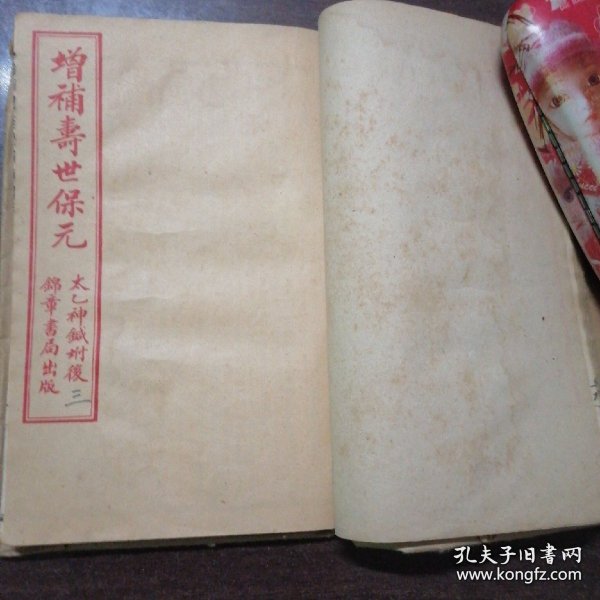 增補壽世保元
太乙神鍼附後 三
錦章書局出版
孔夫子旧书网
www.kongfz.com